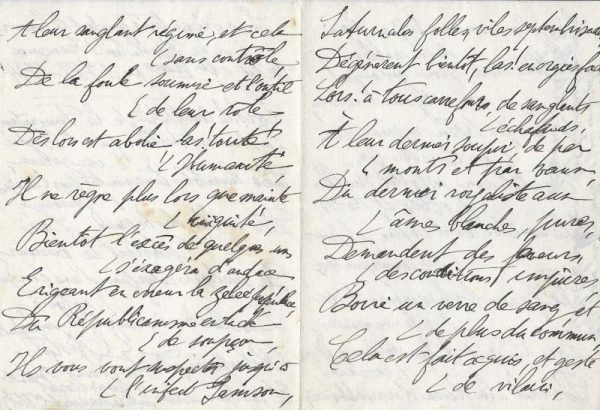 A leur sanglant régime, et cela
sans contrôle,
De la foule soumise et l'outil
de leur rôle
Dès lors est abolie las! toute
Humanité
Il ne règne plus lors que mainte
iniquité,
Bientôt l'excès de quelques uns
s'exagéra d'audace
Erigeant en erreur la
Du Républicanisme entaché
de soupçon,
Ils vous vont suspecter jusqu'à
l'infect Samson,
Saturnales folles, viles
Dégénèrent bientôt, las!
Lors à tous carrefours, de sanglants
échafauds,
À leur dernier soupir de par
monts et par vaux
Du dernier royaliste aux
âmes blanches, pures,
Demandent des
des conditions impures
Boire un verre de sang et
de plus du commun
Cela est fait acquis, et geste
de vilain,